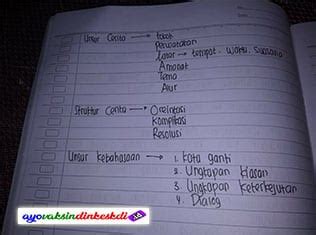 Unsur Cerita → tokoh
Perwatakan
Latar → tempat, waktu, suasana
Amanat
Tema
Alur
Struktur Cerita → Oreintasi
Komplikasi
Resolusi
Unsur kebahasaan → 1. Kata ganti
2. Ungkapan klasan
3. Ungkapan keterkejutan
4. Dialog
ayovaksindinkeskdi